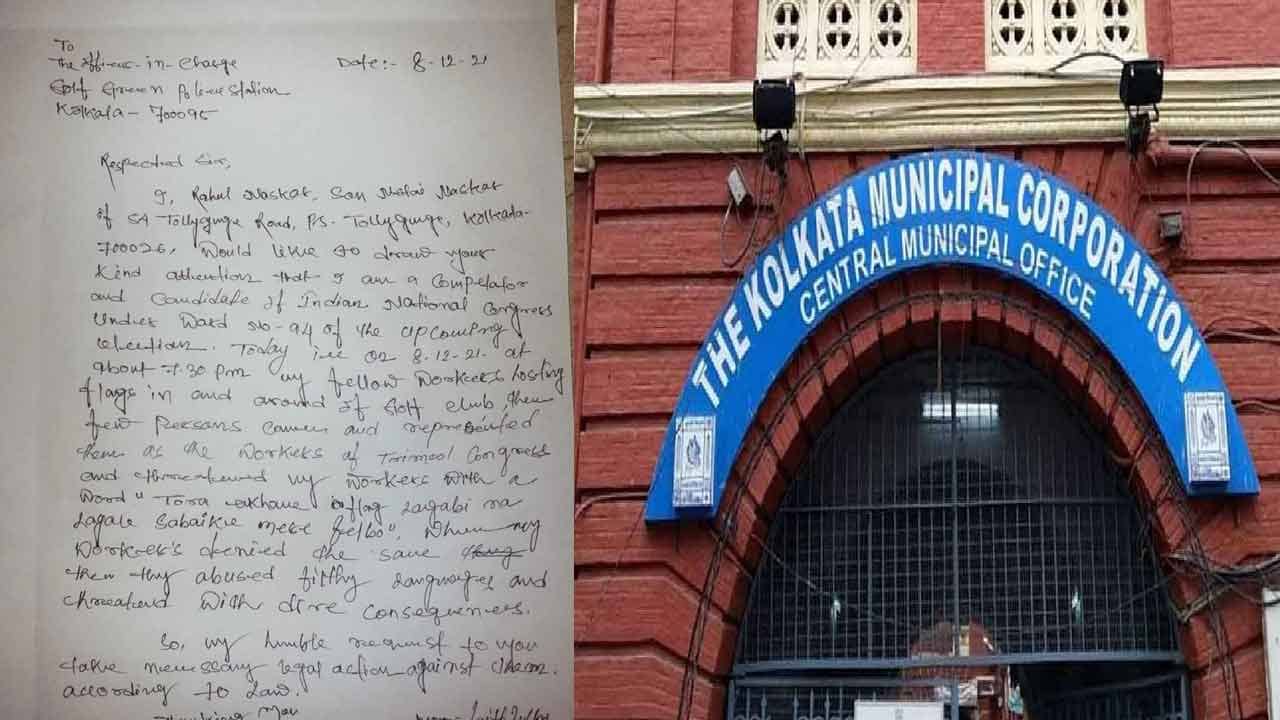 To
The Officer-in-Charge Date:- 8-12-21
Golf Green Police Station
Kolkata - 700095
Respected Sir,
I, Rahul Naskar, Son Naskar
of 5A Tollygunge Road, P.S- Tollygunge, Kolkata-
700026, Would like to draw your
Kind attention that I am a Competator
and Candidate of Indian National Congress
Under Ward No-94 of the upcoming
election. Today i.e on 8-12-21 at
about 7.30 pm my fellow workers hosting
flags in and around of Golf Club, then
few persons came and represented
them as the workers of Congress
and threatened my workers with a
word "Tora akhane flag lagabi na
lagale sabaike mere felbo". When my
workers denied the same
then they abused filthy languages and
threatened with dire consequences.
So, my humble request to you
take necessary legal action against them.
according to Law.
Thanking You
THE KOLKATA MUNICIPAL CORPORATION
CENTRAL MUNICIPAL OFFICE